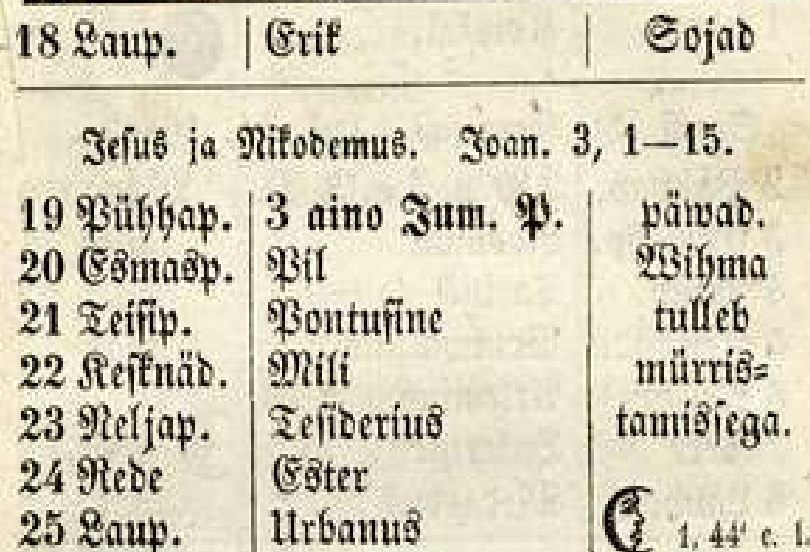 18 Laup. Erik Sojad
Jesus ja Nikodemus. Joan. 3, 1—15.
19 Pühhap. 3 aino Jum. P. päwad.
20 Esmasp. Pil Wihma
21 Teisip. Pontusine tulleb
22 Kesknäd. Mili mürris⸗
23 Neljap. Tesiderius tamissega.
24 Rede Ester
25 Laup. Urbanus 1. 44' e. l.